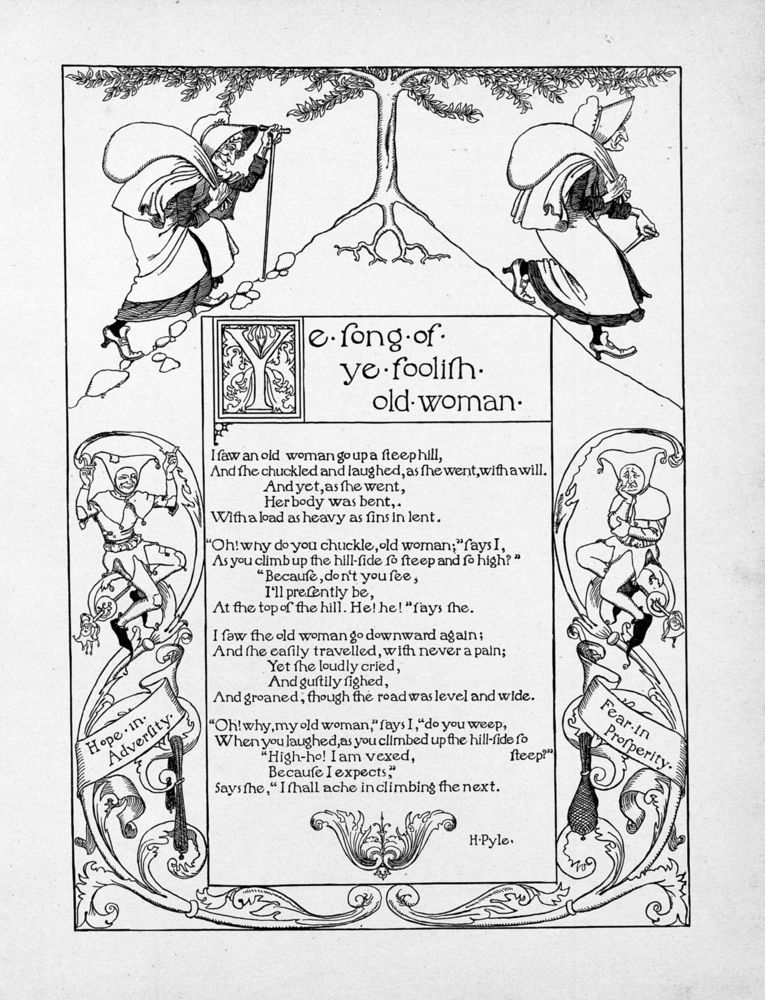 Ye·ſong·of·
ye·fooliſh·
old·woman·
I ſaw an old woman go up a ſteep hill,
And ſhe chuckled and laughed, as ſhe went, with a will.
And yet, as ſhe went,
Her body was bent,.
With a load as heavy as ſins in lent.
"Oh! why do you chuckle, old woman;" ſays I,
As you climb up the hill-ſide ſo ſteep and ſo high?"
"Becauſe, don't you ſee,
I'll preſently be,
At the top of the hill. He! he!" ſays ſhe.
I ſaw the old woman go downward again;
And ſhe eaſily travelled, with never a pain;
Yet ſhe loudly cried,
And guſtily ſighed,
And groaned, though the road was level and wide.
"Oh! why, my old woman," ſays I, "do you weep,
When you laughed, as you climbed up the hill-ſide ſo
ſteep?"
"High-ho! I am vexed,
Becauſe I expects,"
Says ſhe, "I ſhall ache in climbing the next.
H·Pyle.
Hope·in·
Adverſity·
Fear·in
Proſperity·